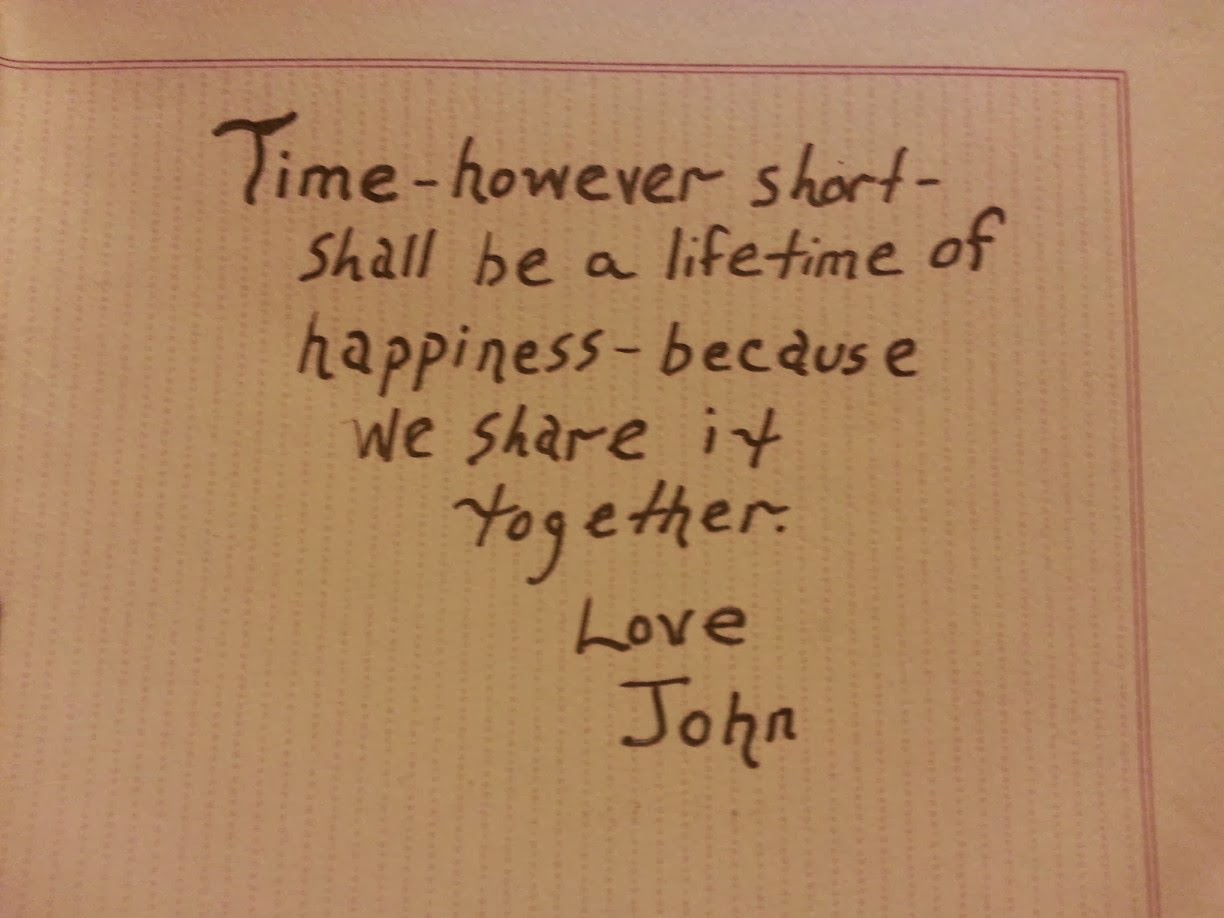 Time-however short-
shall be a lifetime of
happiness-because
we share it
together.
Love
John